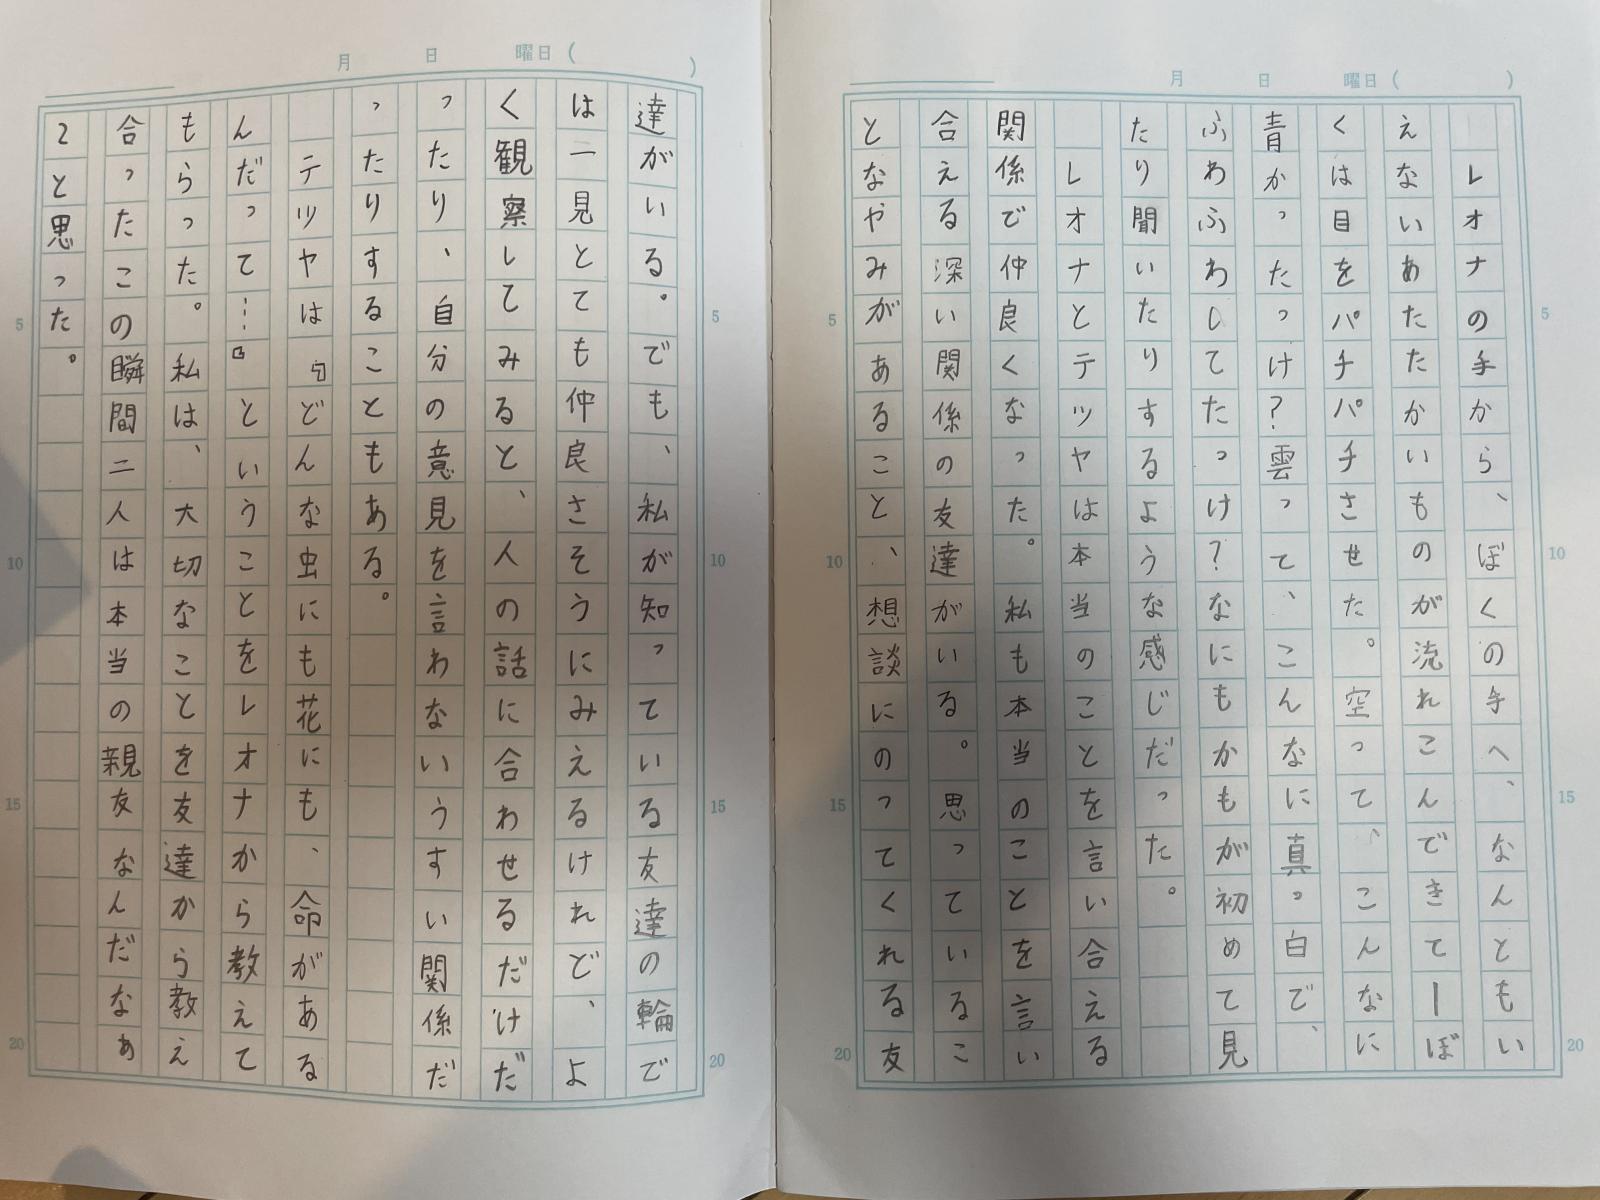 月 日 曜日( )
レオナの手から、ぼくの手へ、なんともい
えないあたたかいものが流れこんできてーぼ
くは目をパチパチさせた。空って、こんなに
青かったっけ?雲って、こんなに真っ白で、
ふわふわしてたっけ?なにもかもが初めて見
たり聞いたりするような感じだった。
レオナとテツヤは本当のことを言い合える
関係で仲良くなった。私も本当のことを言い
合える深い関係の友達がいる。思っているこ
となやみがあること、想談にのってくれる友
5
10
15
20
5
10
15
20
月 日 曜日( )
達がいる。でも、私が知っている友達の輪で
は一見とても仲良さそうにみえるけれど、よ
く観察してみると、人の話に合わせるだけだ
ったり、自分の意見を言わないうすい関係だ
ったりすることもある。
テツヤは『どんな虫にも花にも、命がある
んだって…』ということをレオナから教えて
もらった。私は、大切なことを友達から教え
合ったこの瞬間二人は本当の親友なんだなぁ
と思った。
5
10
15
20
5
10
15
20